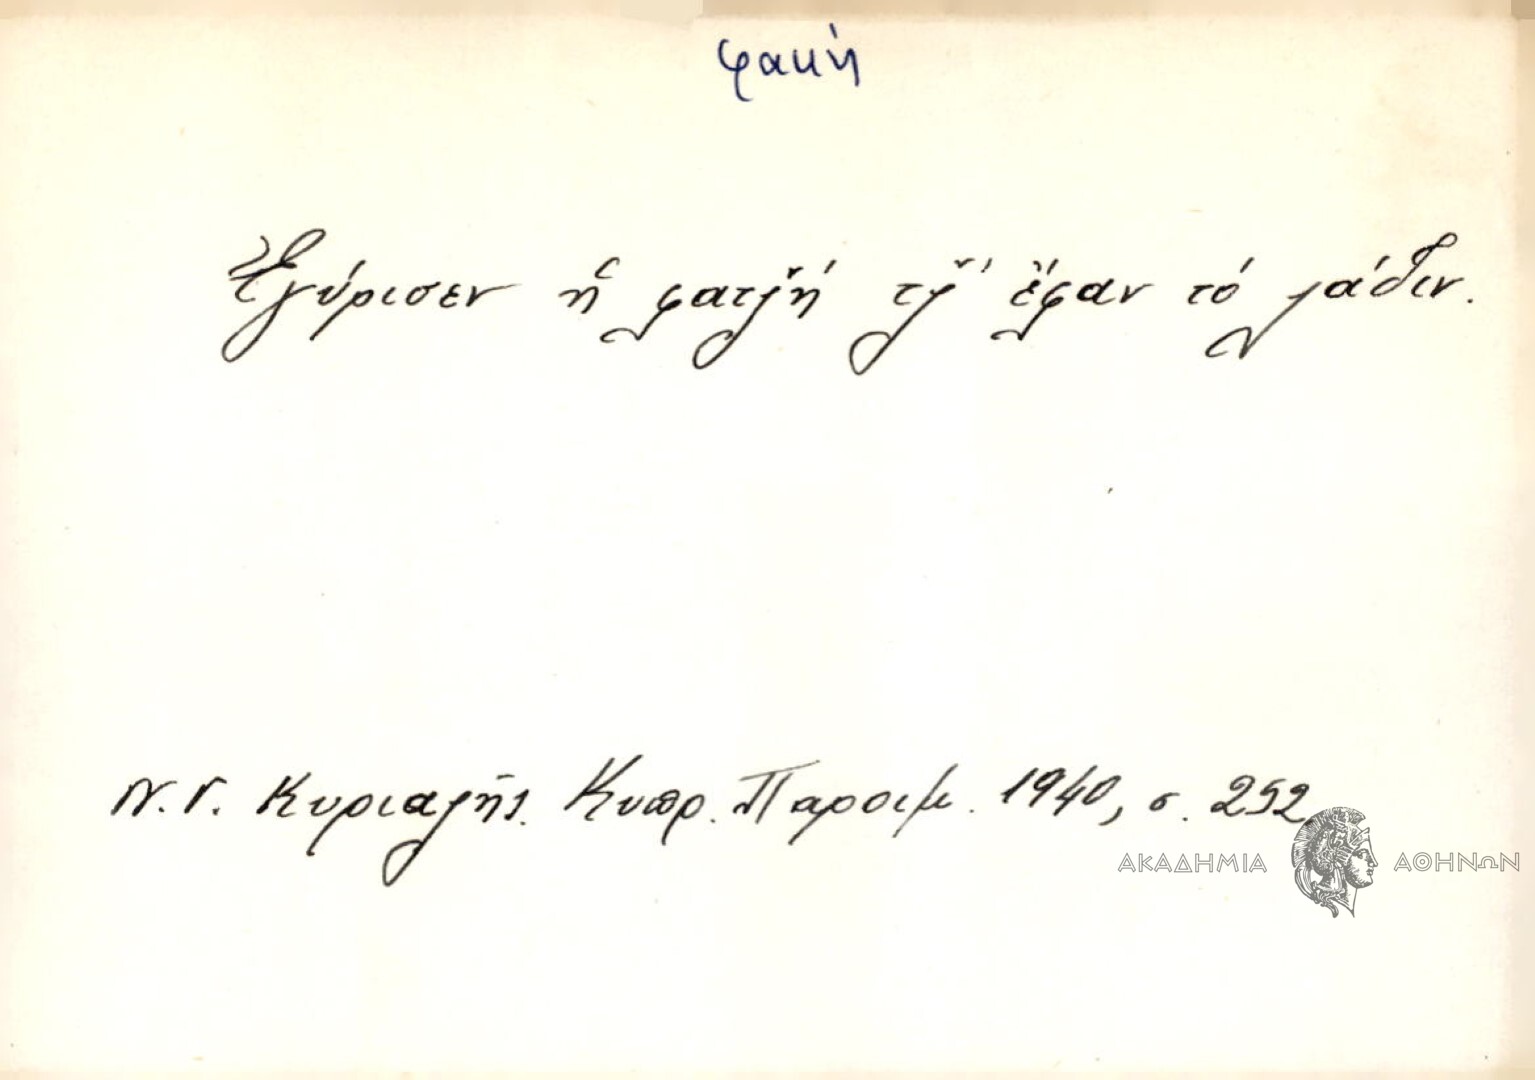 φακή
Ἐγύρισεν ἡ φατζ̌ή τζ̌' ἔφαν τό λάδιν.
Ν. Γ. Κυριαζῆς. Κυπρ. Παροιμ. 1940, σ. 252
ΑΚΑΔΗΜΙΑ ΑΘΗΝΩΝ